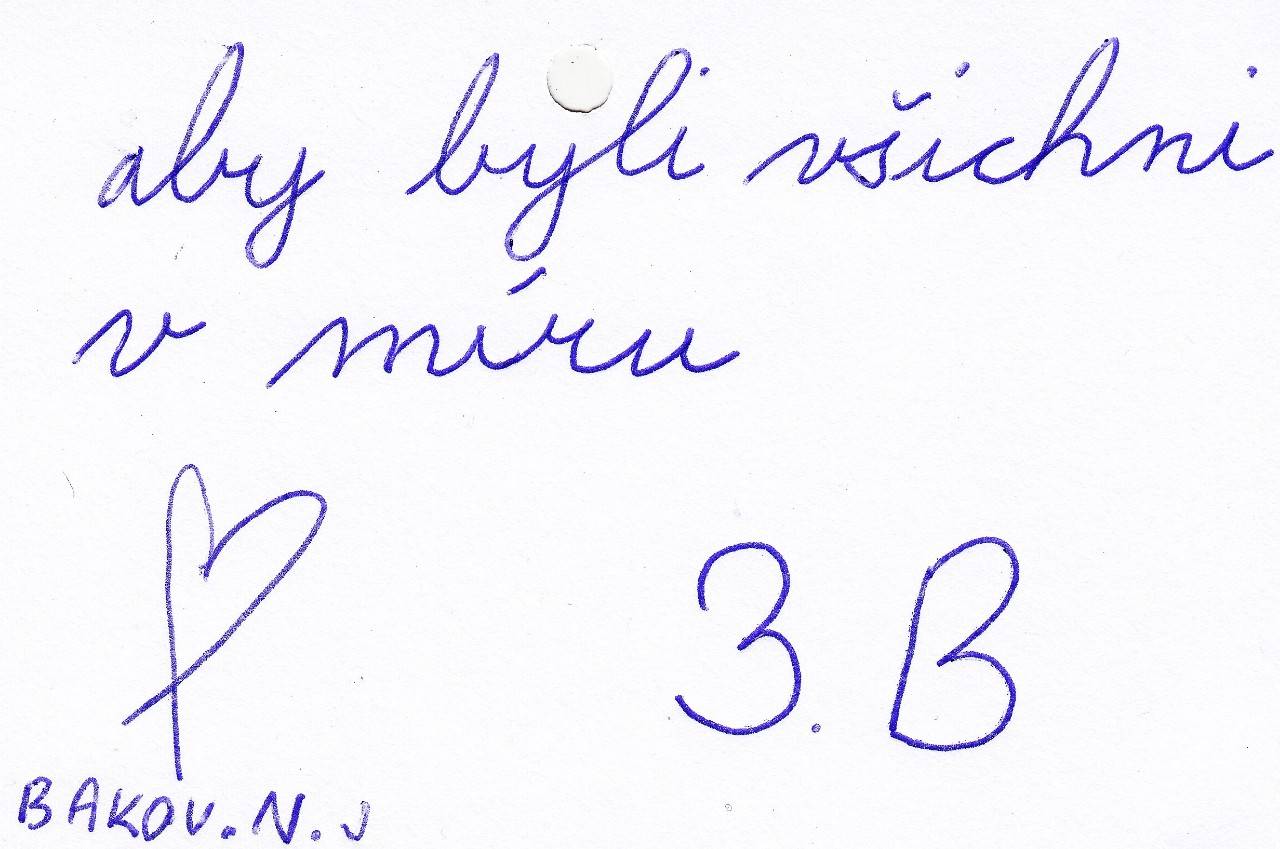 aby byli všichni
v míru
3. B
BAKOV. N. J